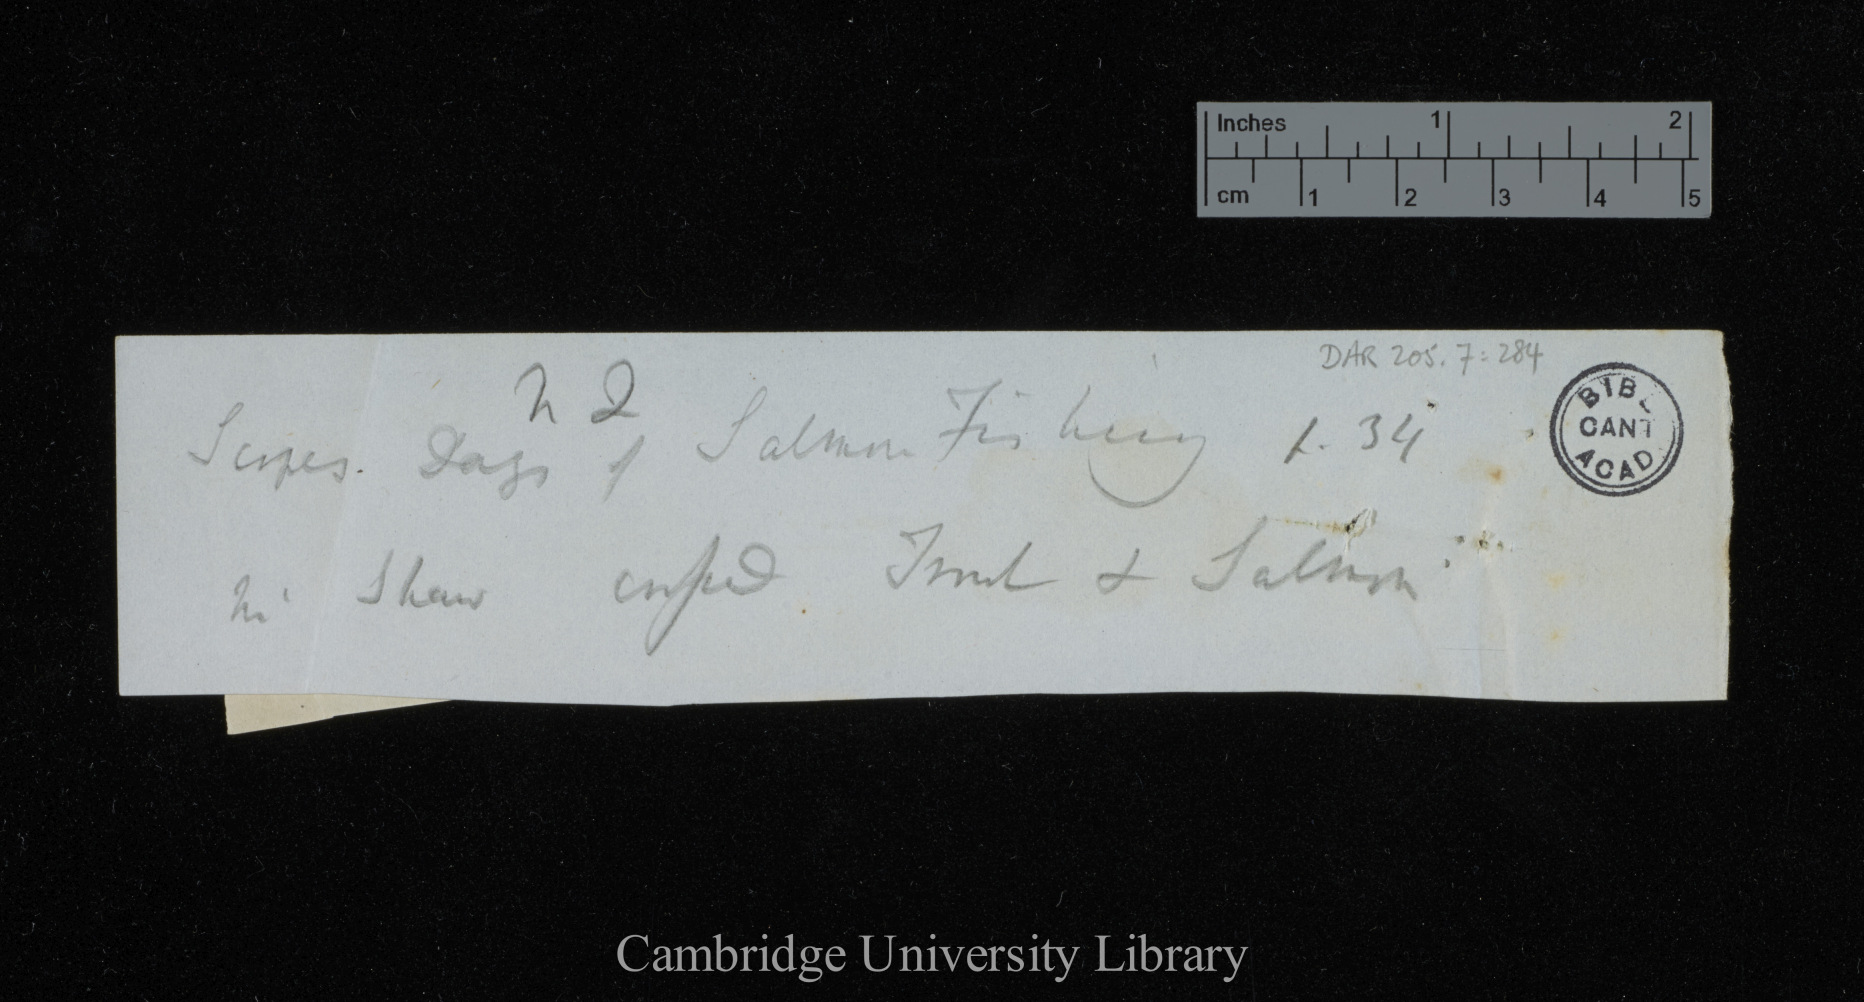 Inches 1 2
cm 1 2 3 4 5
DAR 205.7:284
BIBL
CANT
ACAD
Scropes. Days of Salmon Fishing p. 34
Mr Shaw crossed Trout & Salmon
Cambridge University Library